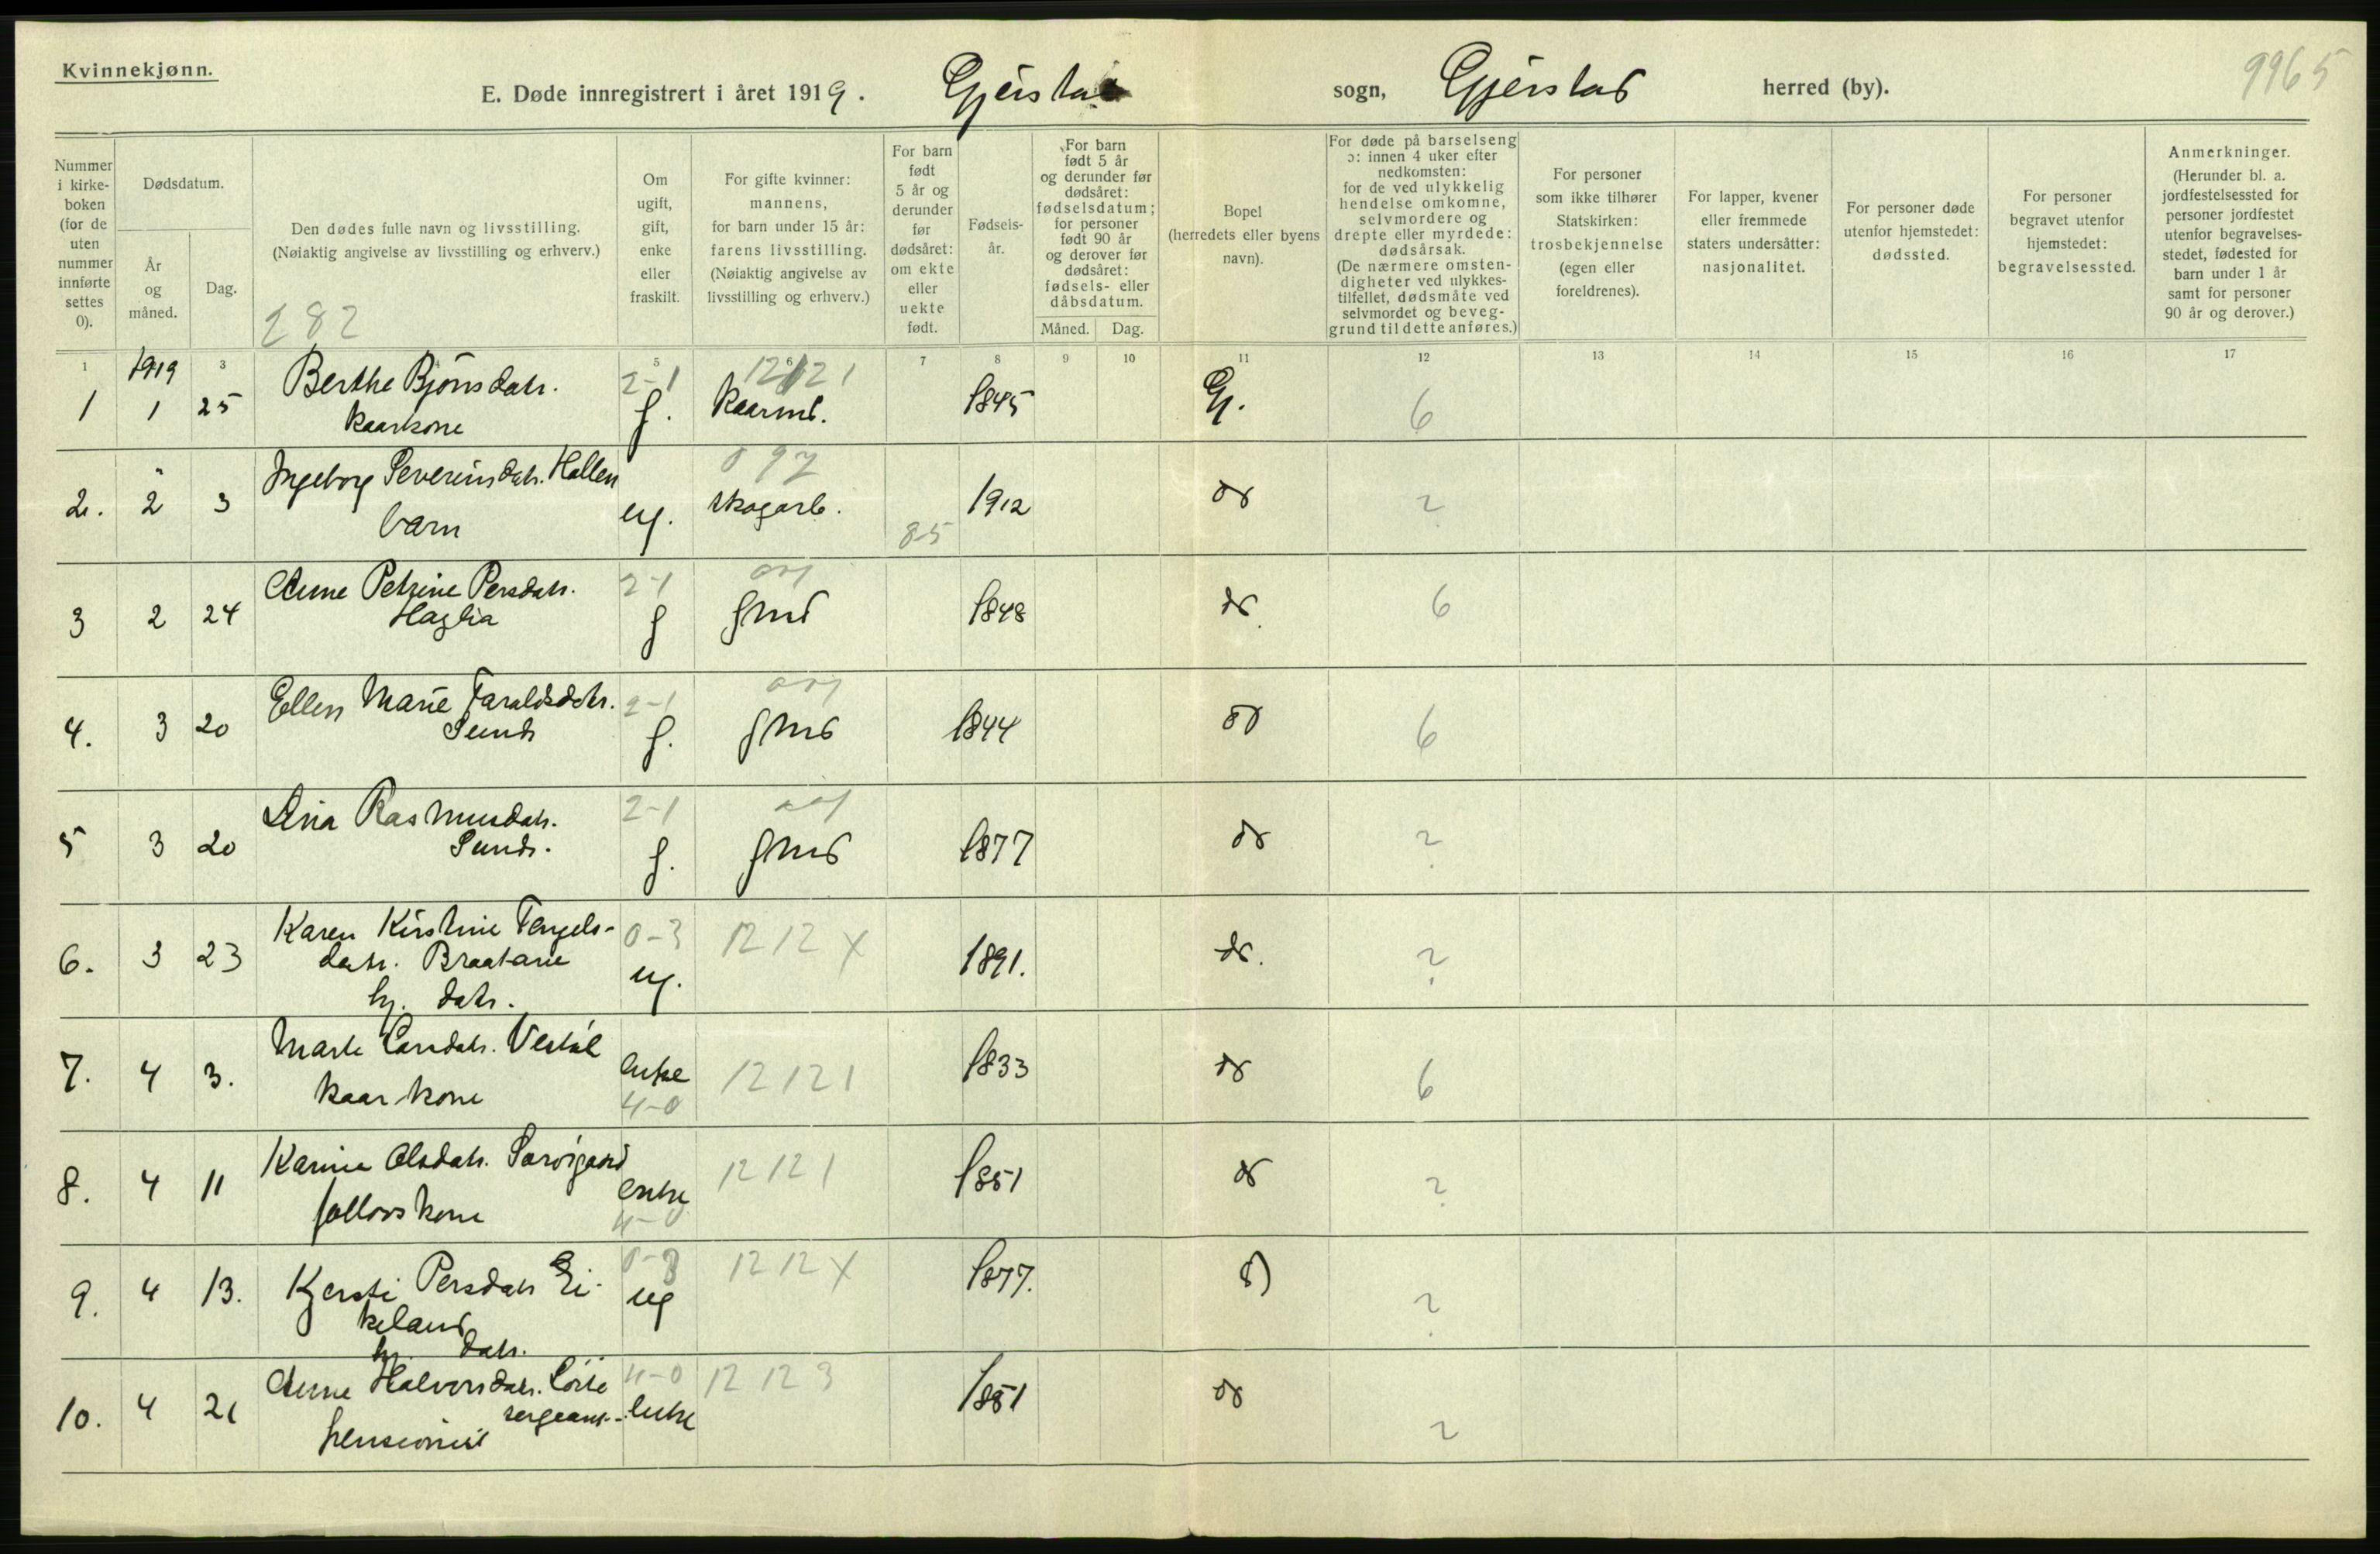 Kvinnekjønn.
E. Døde innregistrert i året 1919. Gjerstad sogn, Gjerstad herred (by).
9965
Nummer i kirkeboken (for de uten nummer innførte settes 0).
Dødsdatum.
År og måned.
Dag.
Den dødes fulle navn og livsstilling.
(Nøiaktig angivelse av livsstilling og erhverv.)
282
Om ugift, gift, enke eller fraskilt.
For gifte kvinner: mannens, for barn under 15 år: farens livsstilling. (Nøiaktig angivelse av livsstilling og erhverv.)
For barn født 5 år og derunder før dødsåret: om ekte eller uekte født.
Fødselsår.
For barn født 5 år og derunder før dødsåret: fødselsdatum; for personer født 90 år og derover før dødsåret: fødsels- eller dåbsdatum.
Måned. Dag.
Bopel (herredets eller byens navn).
For døde på barselseng ɔ: innen 4 uker efter nedkomsten: for de ved ulykkelig hendelse omkomne, selvmordere og drepte eller myrdede: dødsårsak. (De nærmere omstendigheter ved ulykkestilfellet, dødsmåte ved selvmordet og beveggrund til dette anføres.)
For personer som ikke tilhører Statskirken: trosbekjennelse (egen eller foreldrenes).
For lapper, kvener eller fremmede staters undersåtter: nasjonalitet.
For personer døde utenfor hjemstedet: dødssted.
For personer begravet utenfor hjemstedet: begravelsessted.
Anmerkninger. (Herunder bl. a. jordfestelsessted for personer jordfestet utenfor begravelsesstedet, fødested for barn under 1 år samt for personer 90 år og derover.)
1 3 5 6 7 8 9 10 11 12 13 14 15 16 17
1919
1 1 25 Berthe Bjørnsdatr. 2-1 12121
kaarkone g. kaarmd. 1845 Gj. 6
2. " 2 3 Ingeborg Severinsdatr. Hallen 097
barn ug. skogarb. 85 1912 do ?
3 2 24 Anne Petrine Persdatr. 2-1
Haglia g gmd 1848 do. 6
4. 3 20 Ellen Marie Taraldsdatr. 2-1
Sunde g. gmd 1844 do 6
5 3 20 Lina Rasmusdatr. 2-1
Sunde. g. gmd 1877 do ?
6. 3 23 Karen Kirstine Tengels- 0-3 1212X
datr. Braatane ug. 1891. do. ?
hj. datr.
7. 4 3. Marte Larsdatr. Vestøl enke 12121 1833 do 6
kaarkone 4-0
8. 4 11 Karine Olsdatr. 12121 1851 do ?
enke 4-0
9. 4 13. Kjersti Persdatr Ei- 0-3 1212X 1877. do ?
keland ug
hj. datr.
10. 4 21 Anne Halvorsdatr. 4-0 12123 1851 do ?
sergeant- enke
pensionist